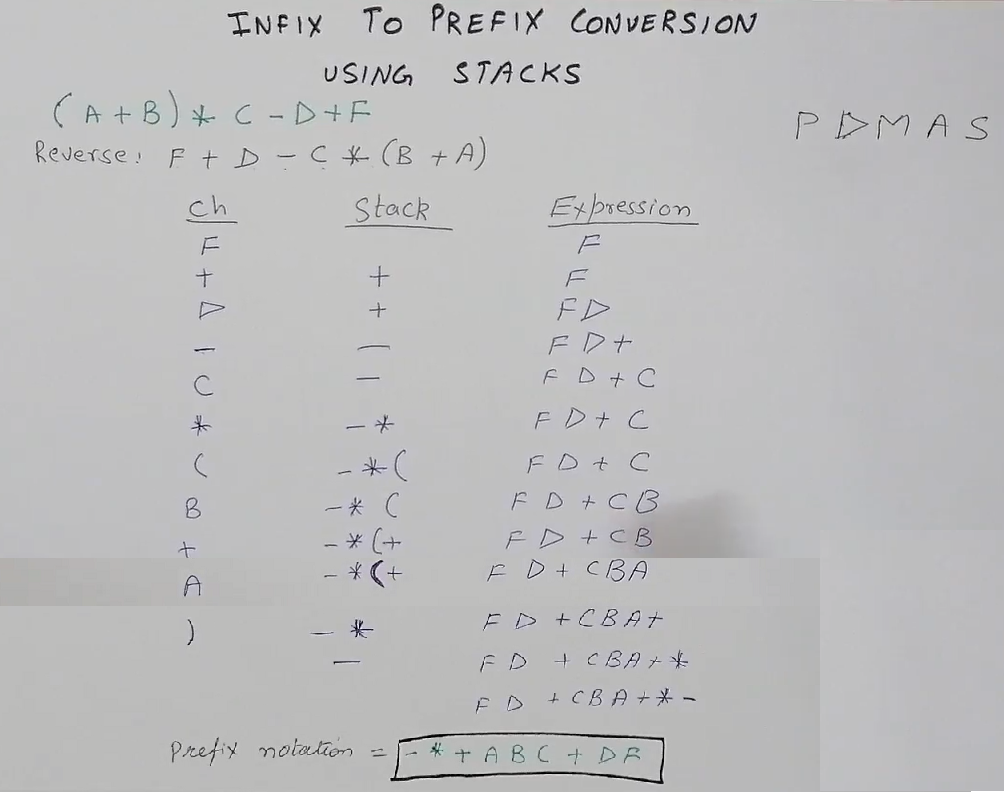 INFIX TO PREFIX CONVERSION
USING STACKS
(A+B) * C - D+F
PDMAS
Reverse: F + D - C * (B + A)
Ch Stack Expression
F F
+ + F
D + FD
- - F D +
C - F D + C
* - * F D + C
( - * ( F D + C
B - * ( F D + C B
+ - * ( + F D + C B
A - * ( + F D + C B A
) - * F D + C B A +
- F D + C B A + *
F D + C B A + * -
Prefix notation = - * + A B C + D F